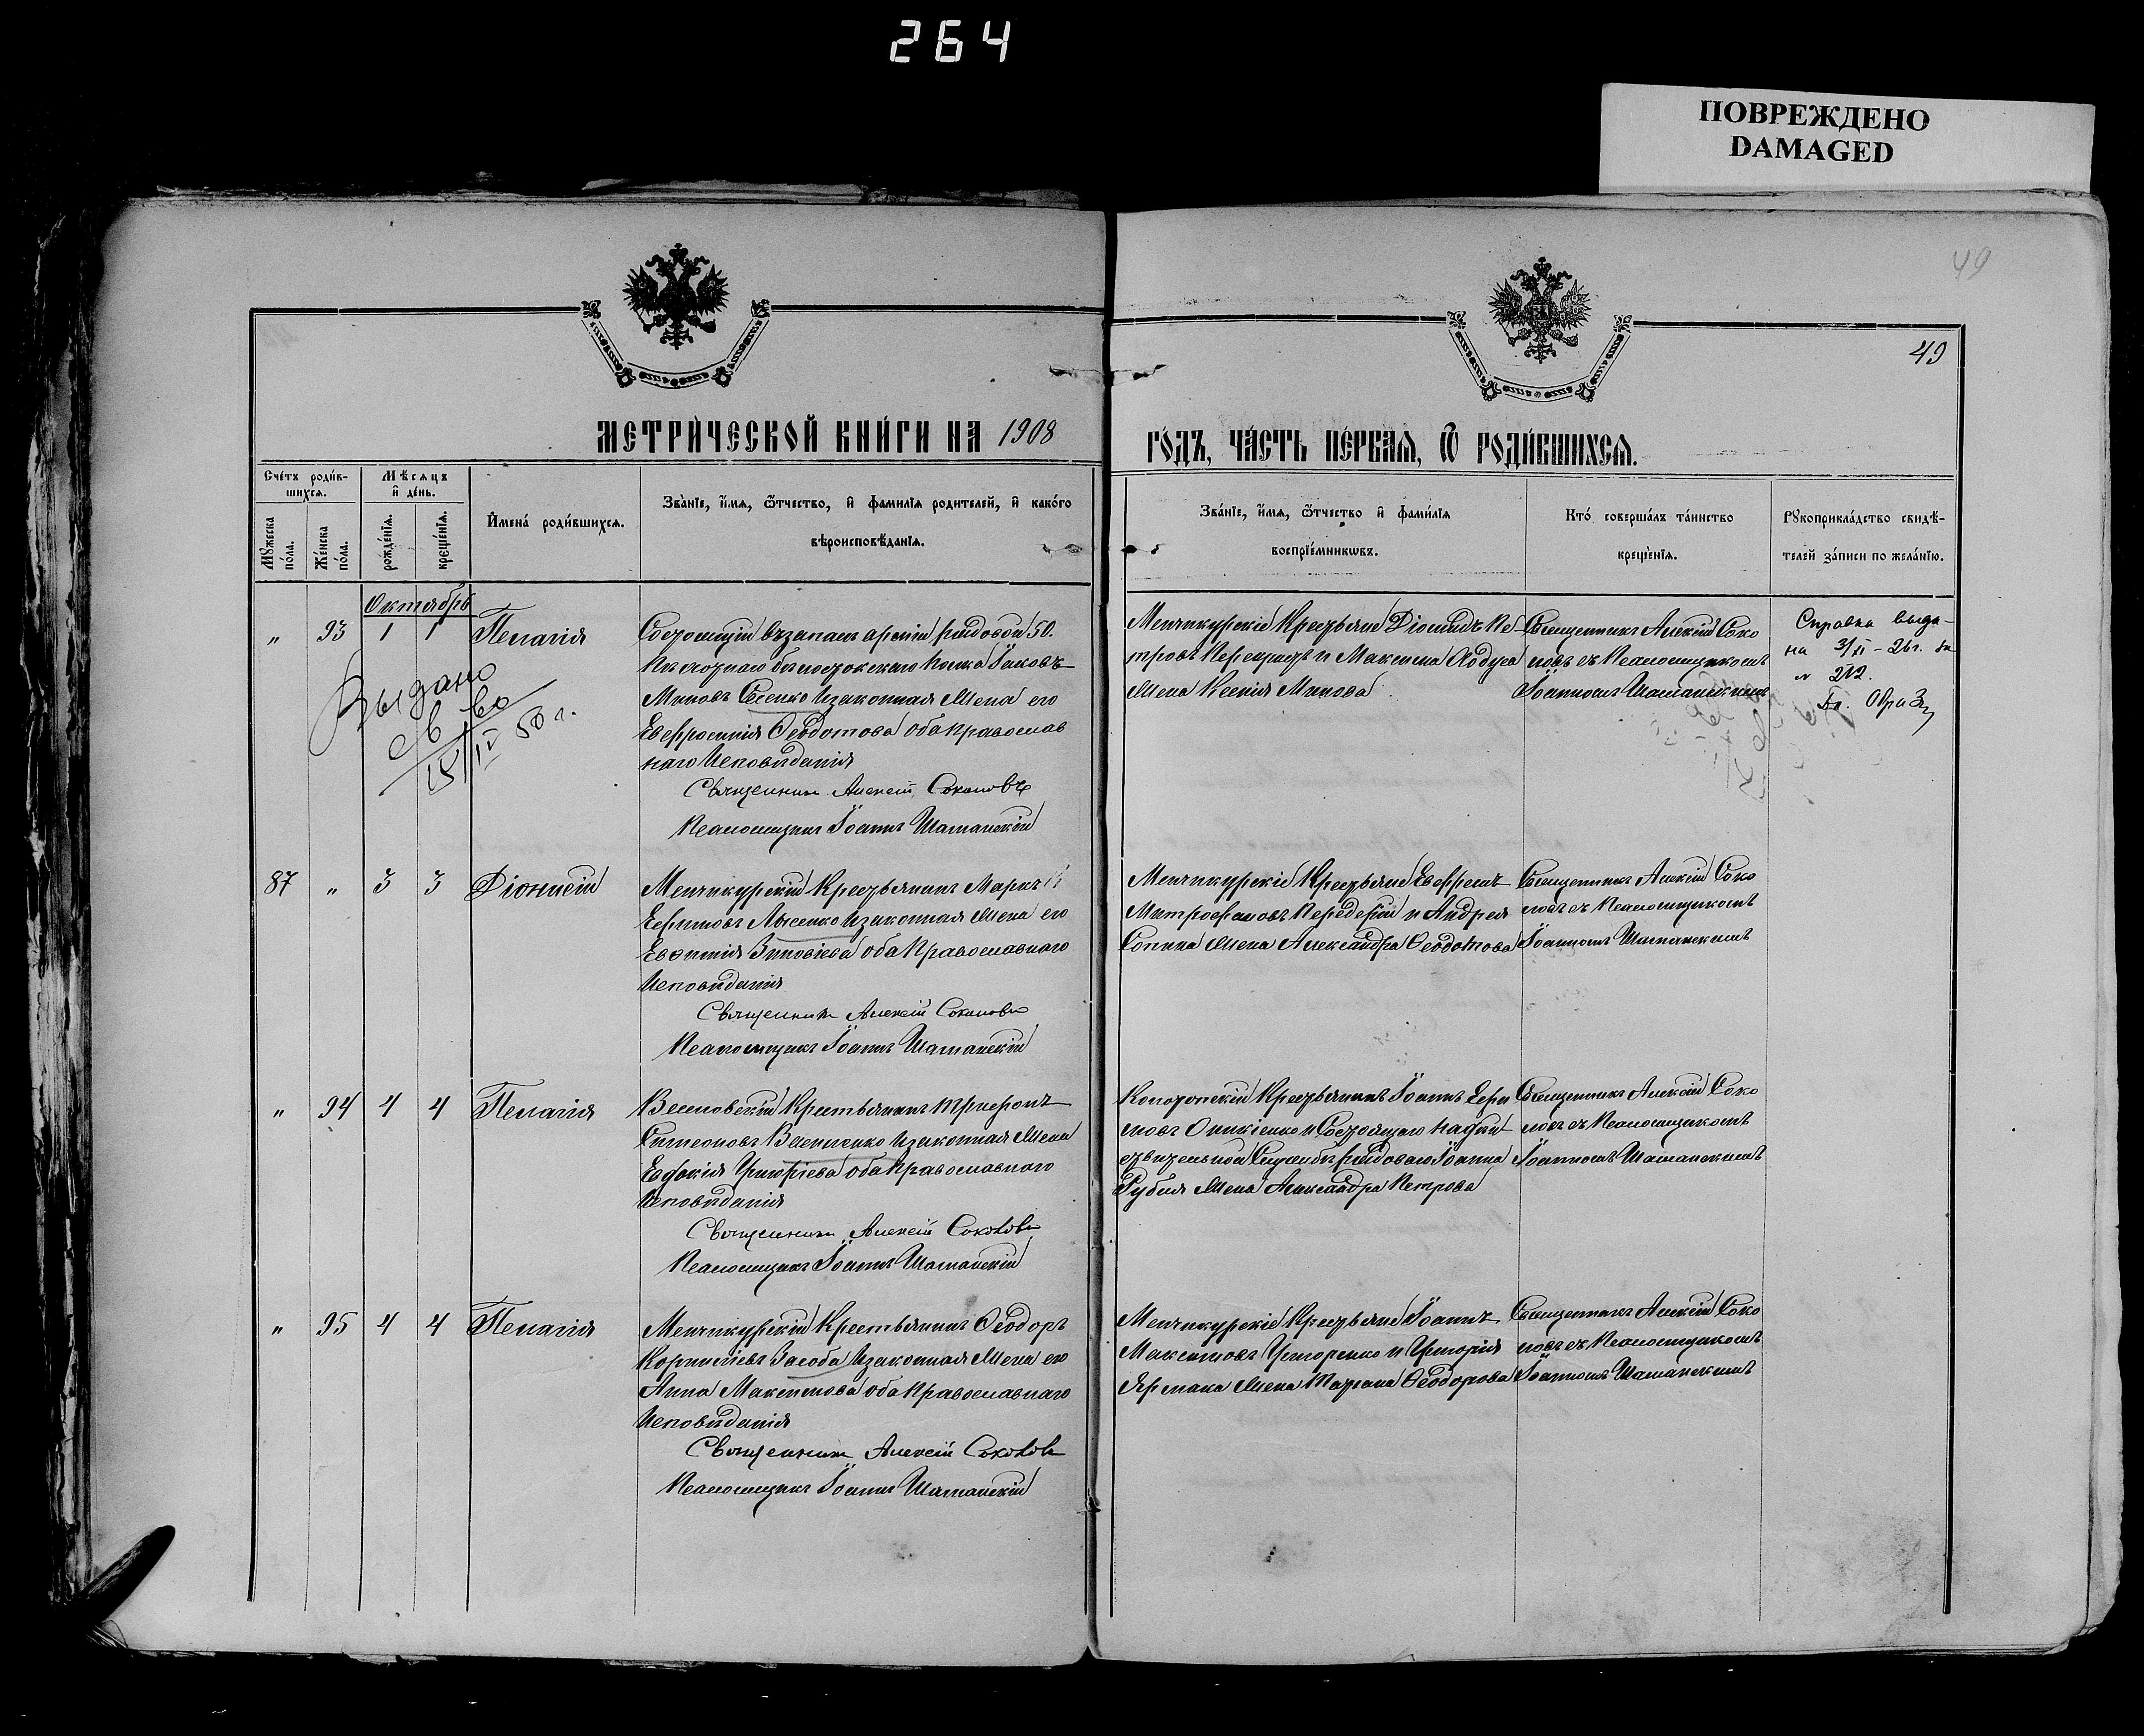 264
ПОВРЕЖДЕНО
DAMAGED
49
49
МЕТРИ́ЧЕСКОЙ КНИ́ГИ НА 1908
ГО́ДЪ, ЧА́СТЬ ПЕ́РВАѦ, Ѽ РОДИ́ВШИХСѦ.
Сче́тъ роди́в-
шихсѧ.
Мѣ́сѧцъ
и҆ де́нь.
Мꙋ́жеска по́ла.
Же́нска по́ла.
рожде́нїѧ.
креще́нїѧ.
И҆мена̀ роди́вшихсѧ.
Зва́нїе, и҆́мѧ, ѻ҆́тчество, и҆ фами́лїѧ роди́телей, и҆ како́го
вѣроисповѣ́данїѧ.
Зва́нїе, и҆́мѧ, ѻ҆́тчество и҆ фами́лїѧ
воспрїе́мникѡвъ.
Кто̀ соверша́лъ та́инство
креще́нїѧ.
Рꙋкоприкла́дство свидѣ́-
телей за́писи по жела́нїю.
Октябрь
" 93 1 1 Пелагія
Состоящій въ запасѣ арміи рядовой 50.
пѣхотнаго бѣлостокскаго полка Іаковъ
Миновъ Євсенко и законная жена его
Евфросинія Ѳеодотова оба православ
наго исповѣданія
Священникъ Алексій Соколовъ
Псаломщикъ Іоаннъ Шаманскій
Выдано
св-во
18/IV 50 г.
Менчикурскіе Крестьяне Діомидъ Пе
тровъ Перекрестъ и Максима Ходуса
жена Ксенія Минова
Священникъ Алексій Соко
ловъ съ Псаломщикомъ
Іоанномъ Шаманскимъ
Справка выда-
на 3/XI - 26г. за
№ 212.
87 " 3 3 Діонисій
Менчикурскій Крестьянинъ Маркъ
Ефимовъ Лысенко и законная жена его
Евѳимія Зиновіева оба Православнаго
исповѣданія
Священникъ Алексій Соколовъ
Псаломщикъ Іоаннъ Шаманскій
Менчикурскіе Крестьяне Евфремъ
Митрофановъ Передерій и Андрея
Сопина жена Александра Ѳеодотова
Священникъ Алексій Соко
ловъ съ Псаломщикомъ
Іоанномъ Шаманскимъ
" 94 4 4 Пелагія
Веселовскій Крестьянинъ Трифонъ
Симеоновъ Василенко и законная жена
Евдокія Григоріева оба Православнаго
исповѣданія
Священникъ Алексій Соколовъ
Псаломщикъ Іоаннъ Шаманскій
Конотопскій Крестьянинъ Іоаннъ Ефи
мовъ Оникіенко и Состоящаго на дѣй
ствительной Службѣ рядоваго Іоанна
Рубля жена Александра Петрова
Священникъ Алексій Соко
ловъ съ Псаломщикомъ
Іоанномъ Шаманскимъ
" 95 4 4 Пелагія
Менчикурскій Крестьянинъ Ѳеодоръ
Корниліевъ Засоба и законная жена его
Анна Максимова оба Православнаго
исповѣданія
Священникъ Алексій Соколовъ
Псаломщикъ Іоаннъ Шаманскій
Менчикурскіе Крестьяне Іоаннъ
Максимовъ Григоренко и Григорія
Ярмака жена Татіана Ѳеодорова
Священникъ Алексій Соко
ловъ съ Псаломщикомъ
Іоанномъ Шаманскимъ